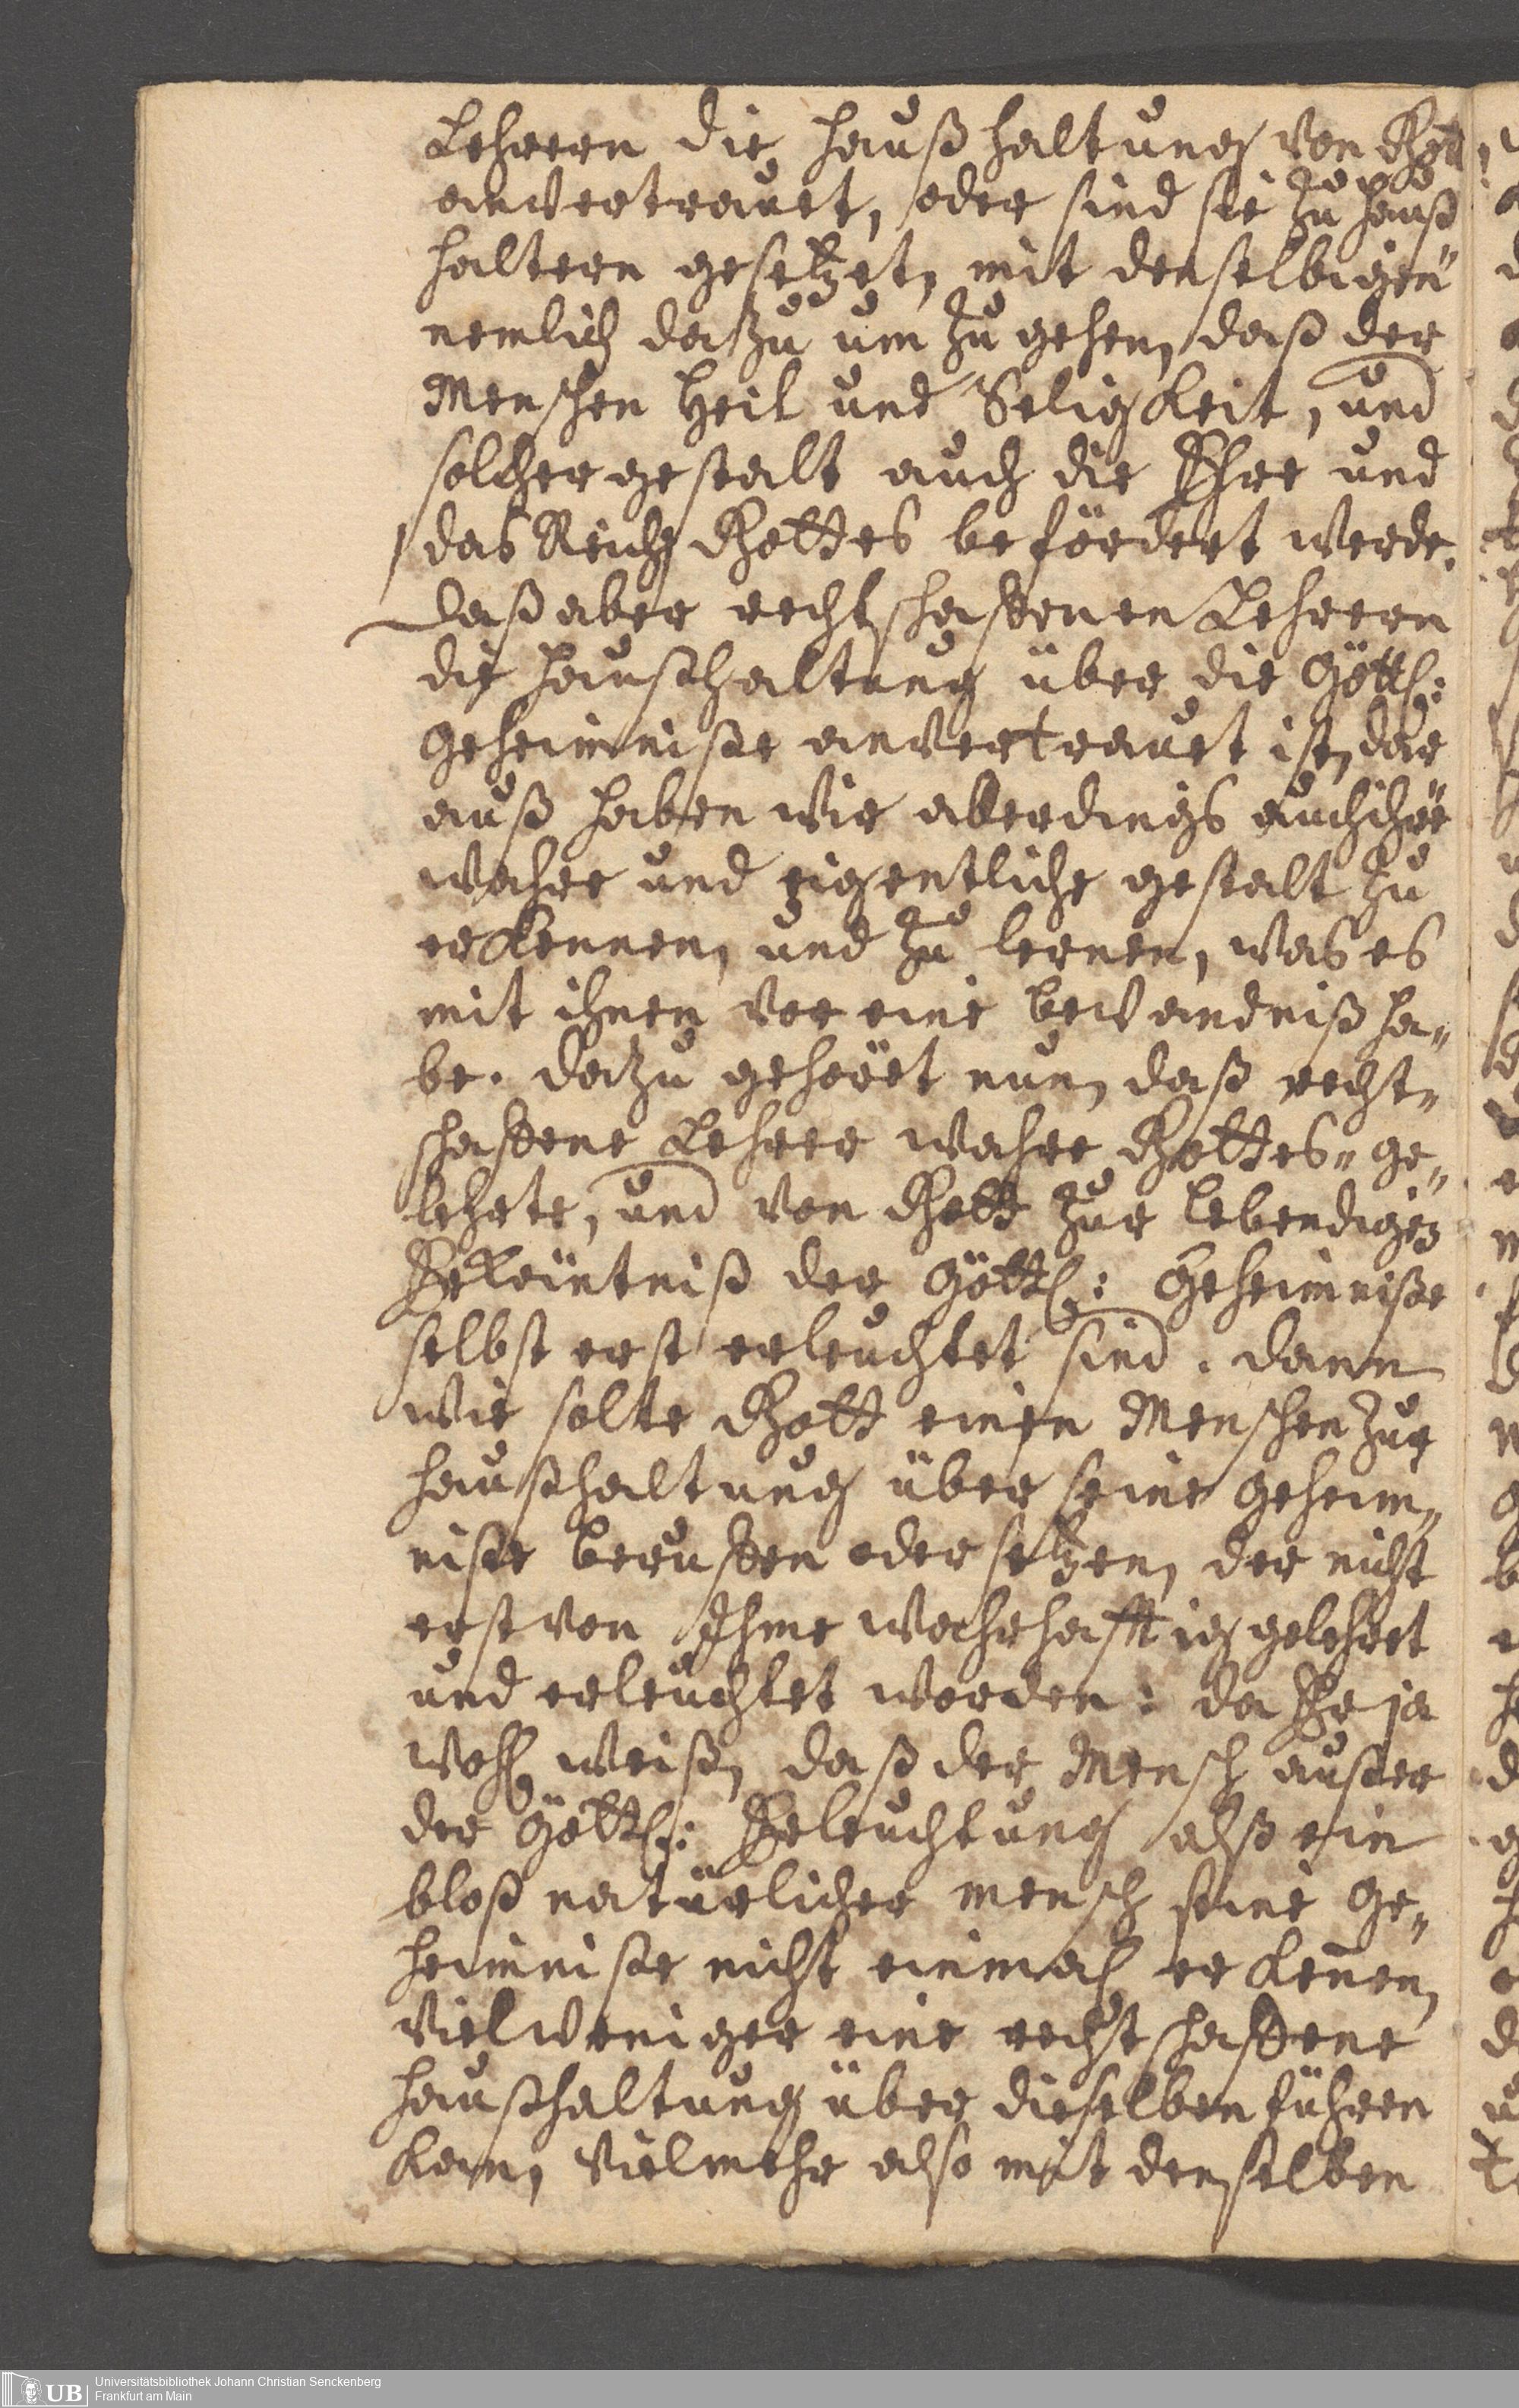 Lehrern die Haußhaltung von Gott
anvertrauet, oder sind sie zu Hauß
haltern gesetzet, mit denselbigen
nemlich dazu um zu gehen, daß der
Menschen Heil und Seligkeit, und
solcher gestalt auch die Ehre und
das Reich Gottes befördert werde.
Daß aber rechtschaffenen Lehrern
die Haußhaltung über die Göttl:
Geheimniße anvertrauet ist, dar
auß haben wir aberdings auch ihre
wahre und eigentliche gestalt zu
erkennen, und zu lernen, was es
mit ihnen vor eine bewandniß ha„
be. dazu gehöret nun, daß recht„
schaffene Lehrer wahre Gottes„ ge„
lehrte, und von Gott zur lebendigen
Erkäntniß der Göttl: Geheimniße
selbst erst erleuchtet sind. dann
wie solte Gott einen Menschen zur
Haußhaltung über seine Geheim„
niße beruffen oder setzen, der nicht
erst von Ihme wahrhafftig gelehret
und erleuchtet worden: da Er ja
wohl weiß, daß der Mensch außer
der Göttl: Erleuchtung alß ein
bloß natürlicher mensch seine Ge„
heimniße nicht einmahl erkenen,
vielweniger eine rechtschaffene
Haußhaltung über dieselben führen
kan, vielmehr also mit denselben
UB Universitätsbibliothek Johann Christian Senckenberg
Frankfurt am Main